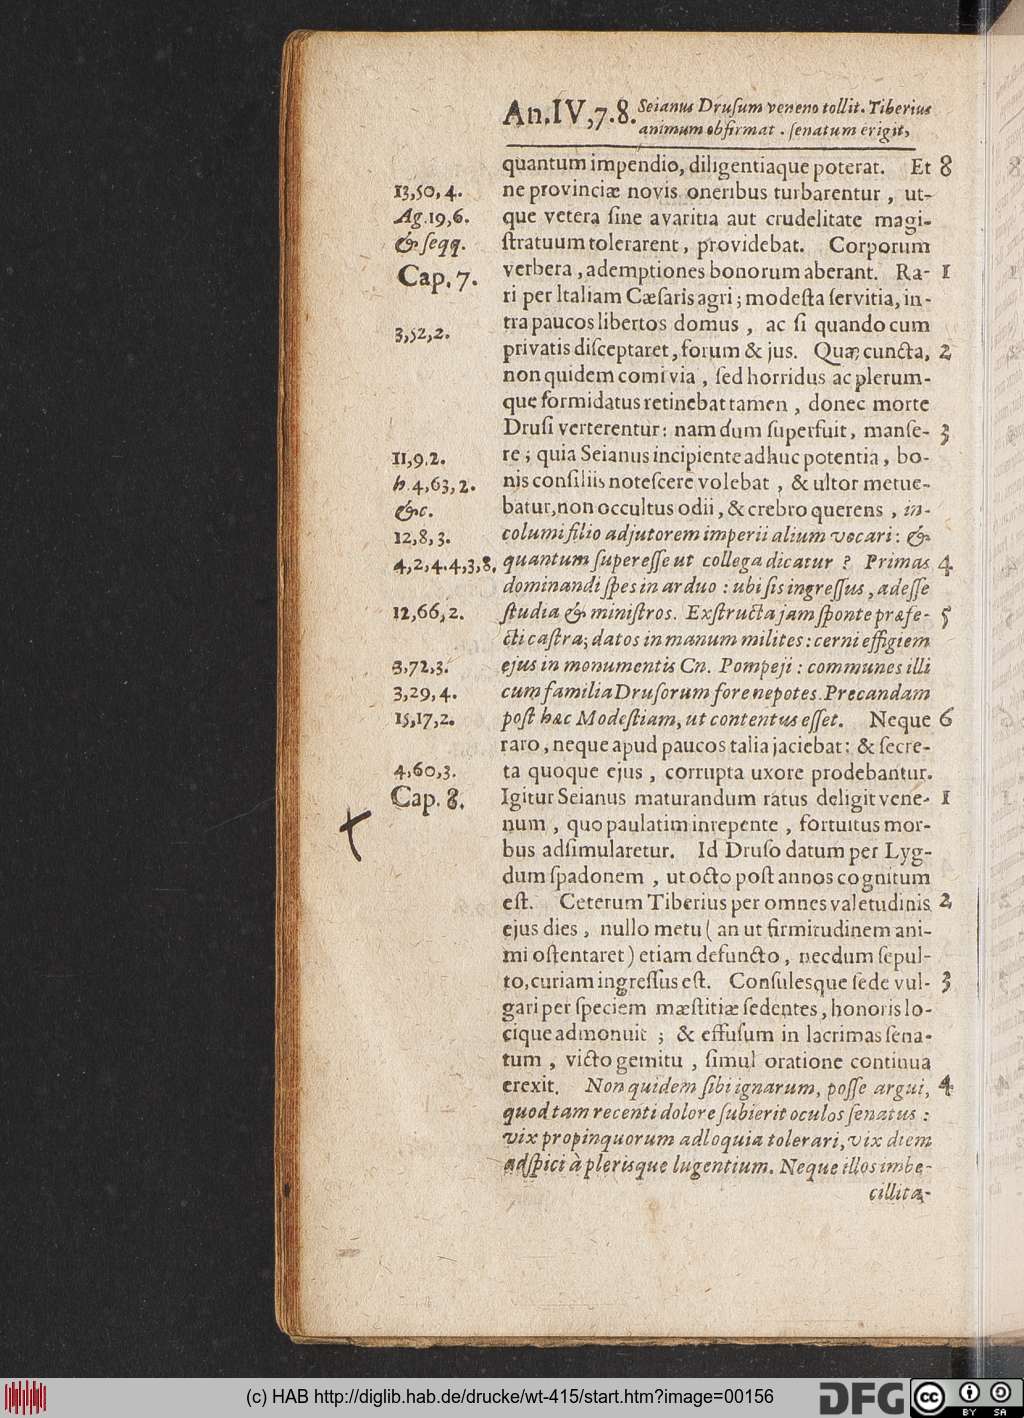 An. IV, 7. 8. Seianus Druſum veneno tollit. Tiberius
animum obfirmat. ſenatum erigit,
quantum impendio, diligentiaque poterat. Et 8
13, 50, 4. ne provinciæ novis oneribus turbarentur, ut-
Ag. 19, 6. que vetera ſine avaritia aut crudelitate magi-
& ſeqq. ſtratuum tolerarent, providebat. Corporum
Cap. 7. verbera, ademptiones bonorum aberant. Ra- 1
ri per Italiam Cæſaris agri; modeſta ſervitia, in-
3, 52, 2. tra paucos libertos domus, ac ſi quando cum
privatis diſceptaret, forum & jus. Quæ cuncta, 2
non quidem comi via, ſed horridus ac plerum-
que formidatus retinebat tamen, donec morte
Druſi verterentur: nam dum ſuperfuit, manſe- 3
11, 9, 2. re; quia Seianus incipiente adhuc potentia, bo-
h. 4, 63, 2. nis conſiliis noteſcere volebat, & ultor metue-
&c. batur, non occultus odii, & crebro querens, in-
12, 8, 3. columi filio adjutorem imperii alium vocari: &
4, 2, 4. 4, 3, 8. quantum ſupereſſe ut collega dicatur? Primas 4
dominandi ſpes in arduo: ubi ſis ingreſſus, adeſſe
12, 66, 2. ſtudia & miniſtros. Exſtructa jam ſponte præfe- 5
cti caſtra; datos in manum milites: cerni effigiem
3, 72, 3. ejus in monumentis Cn. Pompeji: communes illi
3, 29, 4. cum familia Druſorum fore nepotes. Precandam
15, 17, 2. poſt hæc Modeſtiam, ut contentus eſſet. Neque 6
raro, neque apud paucos talia jaciebat: & ſecre-
4, 60, 3. ta quoque ejus, corrupta uxore prodebantur.
Cap. 8. Igitur Seianus maturandum ratus deligit vene- 1
num, quo paulatim inrepente, fortuitus mor-
bus adſimularetur. Id Druſo datum per Lyg-
dum ſpadonem, ut octo poſt annos cognitum
eſt. Ceterum Tiberius per omnes valetudinis 2
ejus dies, nullo metu (an ut firmitudinem ani-
mi oſtentaret) etiam defuncto, necdum ſepul-
to, curiam ingreſſus eſt. Conſulesque ſede vul- 3
gari per ſpeciem mæſtitiæ ſedentes, honoris lo-
cique admonuit; & effuſum in lacrimas ſena-
tum, victo gemitu, ſimul oratione continua
erexit. Non quidem ſibi ignarum, poſſe argui, 4
quod tam recenti dolore ſubierit oculos ſenatus:
vix propinquorum adloquia tolerari, vix diem
adſpici à plerisque lugentium. Neque illos imbe-
cillita-
(c) HAB http://diglib.hab.de/drucke/wt-415/start.htm?image=00156
DFG
cc BY SA